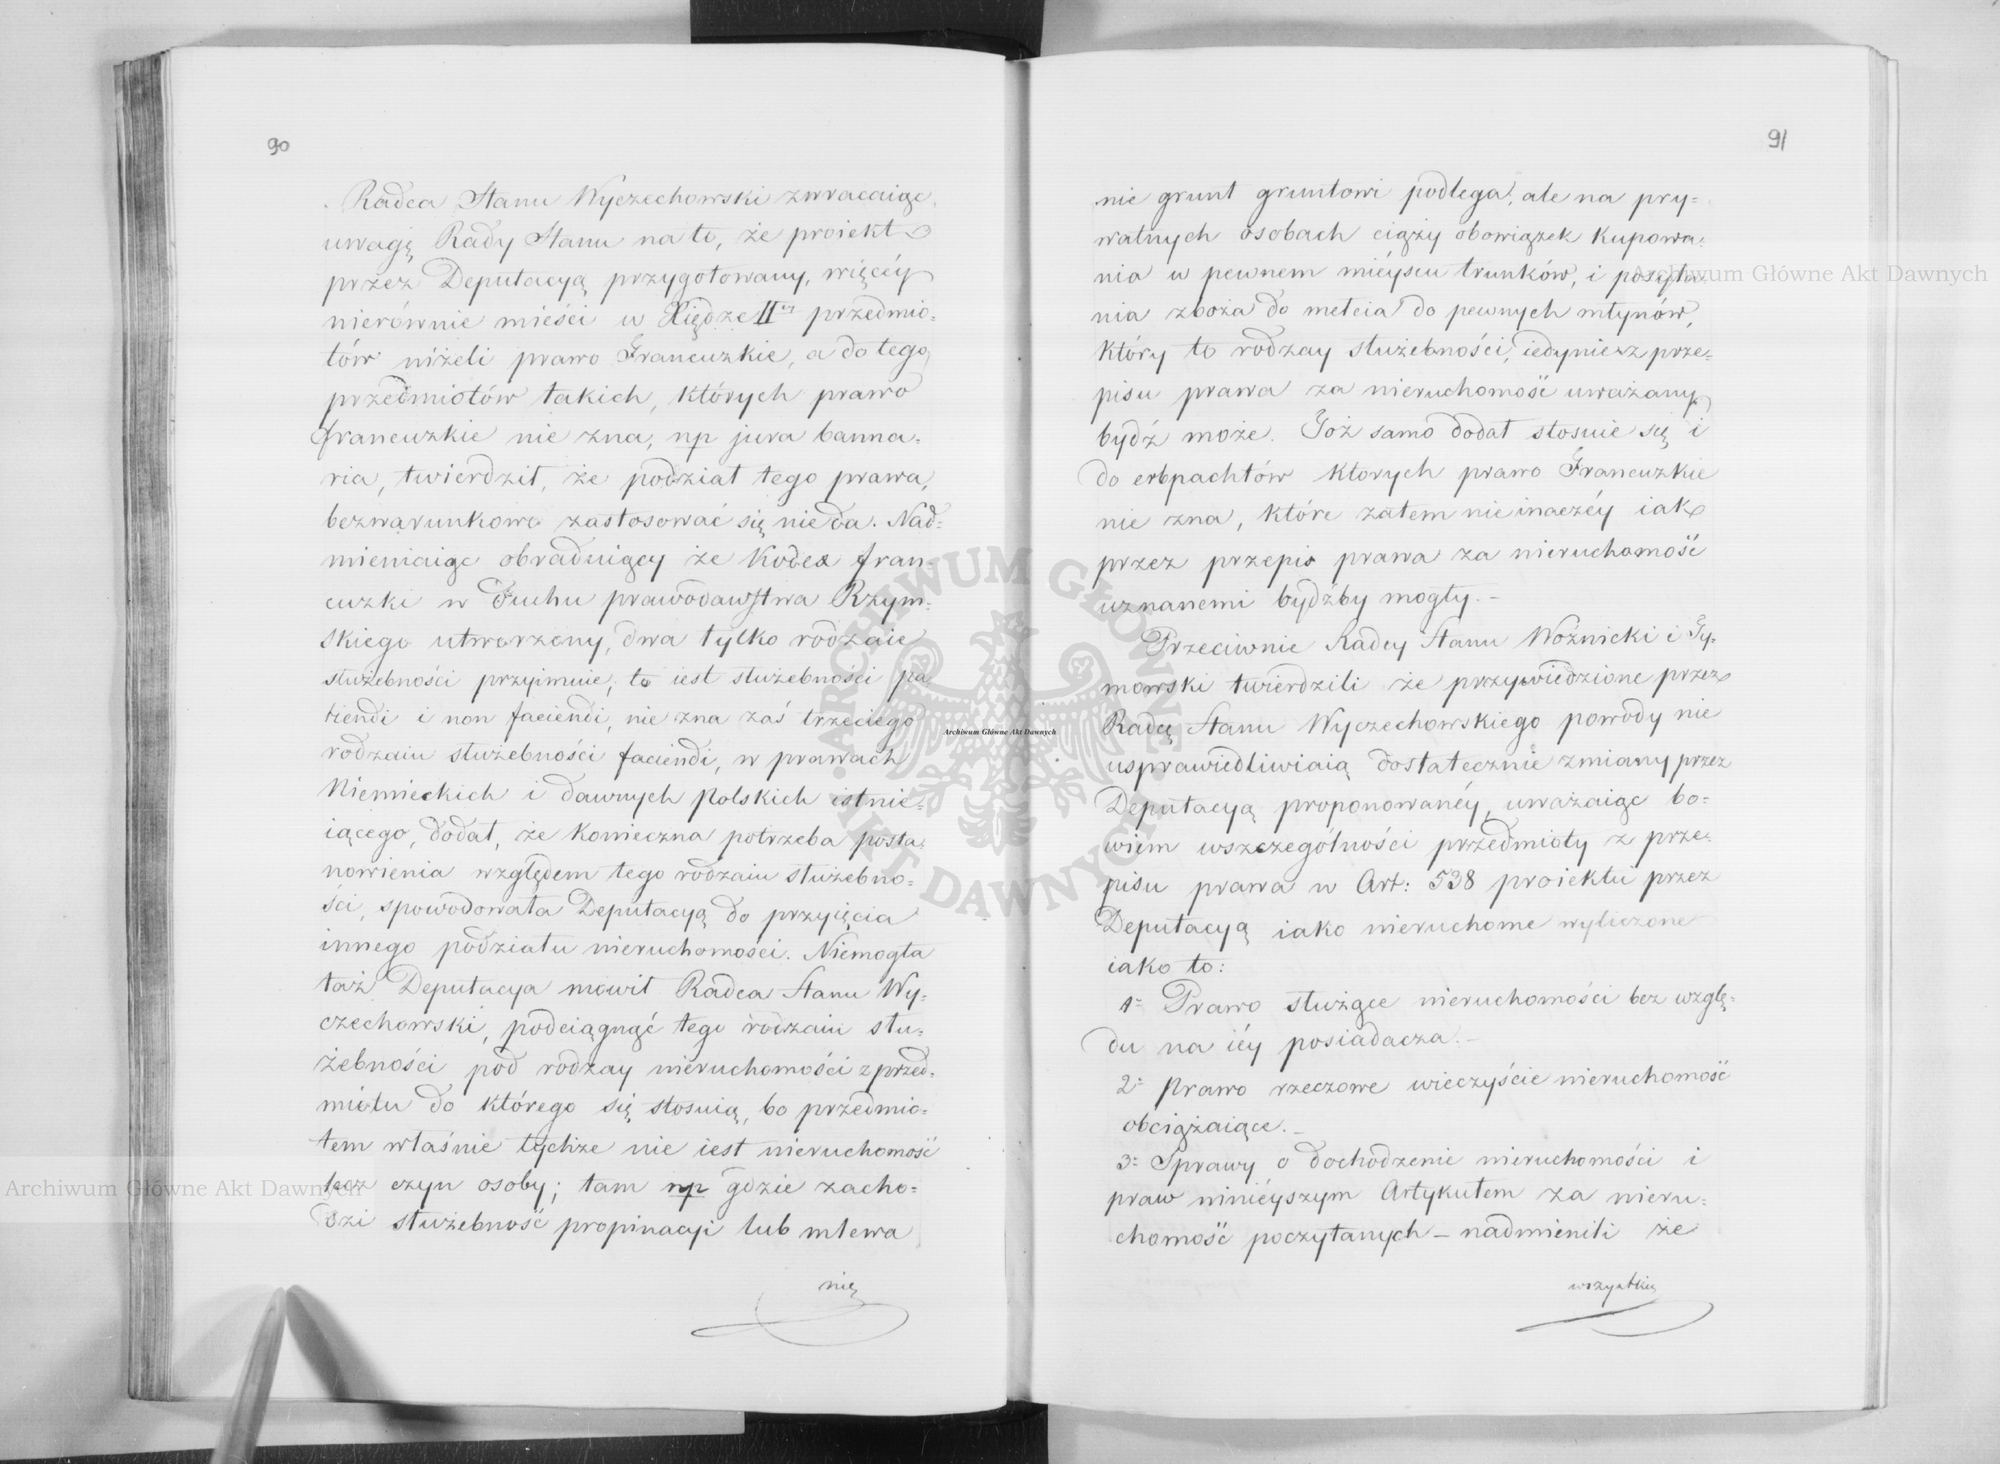 90
Radca Stanu Wyczechowski zwracaiąc
uwagę Rady Stanu na to, że proiekt
przez Deputacyą przygotowany, więcéy
nierównie mieści w Xiędze II przedmio=
tów niżeli prawo Francuzkie, a do tego
przedmiotów takich, których prawo
francuzkie nie zna, np jura banna=
ria, twierdził, że podział tego prawa,
bezwarunkowo zastosować się nie da. Nad=
mieniaiąc obraduiącey że Kodex fran=
cuzki w duchu prawodawstwa Rzym=
skiego utworzony, dwa tylko rodzaie
służebności przyimuie, to iest służebności pa
tiendi i non faciendi, nie zna zaś trzeciego
rodzaiu służebności faciendi, w prawach
Niemieckich i dawnych polskich istnie=
iącego, dodał, że konieczna potrzeba posta=
nowienia względem tego rodzaiu służebno=
ści, spowodowała Deputacyą do przyięcia
innego podziału nieruchomości. Niemogła
taż Deputacya mowił Radca Stanu Wy=
czechowski, podciągnąć tego rodzaiu słu=
żebności pod rodzay nieruchomości z przed=
miotu do którego się stosuią, bo przedmio=
tem właśnie tychże nie iest nieruchomość
lecz czyn osoby; tam np gdzie zacho=
dzi służebność propinacyi lub mlewa
nie
91
nie grunt gruntowi podlega, ale na pry=
watnych osobach ciąży obowiązek kupowa=
nia w pewnem mieyscu trunków, i posyła
nia zboża do mełcia do pewnych młynów,
który to rodzay służebności, iedynie z prze=
pisu prawa za nieruchomość uważany
bydź może. Toż samo dodał stosuie się i
do erbpachtów ktorych prawo Francuzkie
nie zna, które zatem nie inaczéy iak
przez przepis prawa za nieruchomość
uznanemi bydźby mogły.—
Przeciwnie Radcy Stanu Woźnicki i Ty=
mowski twierdzili że przywiedzione przez
Radcę Stanu Wyczechowskiego powody nie
usprawiedliwiaią dostatecznie zmiany przez
Deputacyą proponowanéy, uważaiąc bo=
wiem wszczególności przedmioty z prze=
pisu prawa w Art: 538 proiektu przez
Deputacyą iako nieruchome wyliczone
iako to:
1= Prawo służące nieruchomości bez wzglę=
du na iéy posiadacza.—
2= Prawo rzeczowe wieczyście nieruchomość
obciążaiące.—
3= Sprawy o dochodzenie nieruchomości i
praw niniéyszym Artykułem za nieru=
chomość poczytanych — nadmienili że
wszystkie
Archiwum Główne Akt Dawnych
Archiwum Główne Akt Dawnych
Archiwum Główne Akt Dawnych
ARCHIWUM GŁÓWNE
AKT DAWNYCH